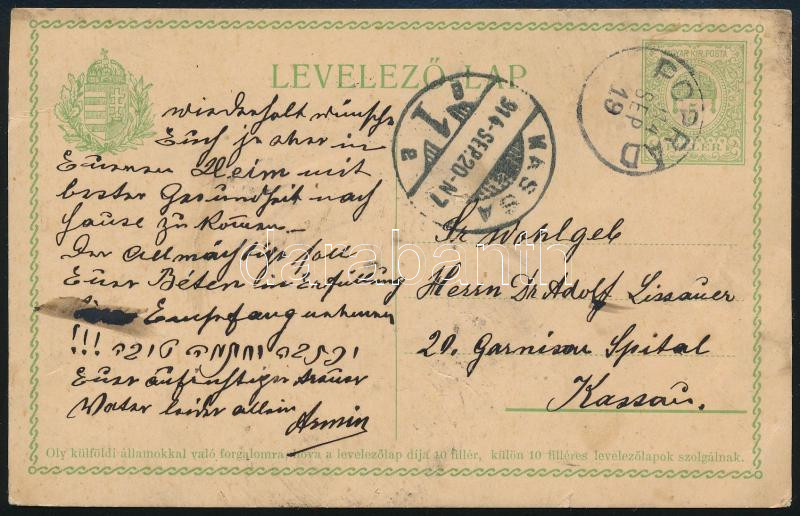 LEVELEZŐ-LAP
MAGYAR KIR. POSTA
5
FILLÉR
POPRÁD
914
SEP
19
KASSA
914-SEP20-N7
1
a
wiederholt wünsche
Euch ja aber in
Eueren Heim mit
bester Gesundheit nach
hause zu komen –
Der Allmächtige soll
Euer Beten in Erfüllung
Empfang nehmen
!!! וכתבה וחתמה טובה
Euer aufrichtiger treuer
Vater leider allein
Armin
Sr Wohlgeb
Herrn Dr Adolf Lissauer
20. Garnison Spital
Kassau.
Oly külföldi államokkal való forgalomra, hova a levelezőlap díja 10 fillér, külön 10 filléres levelezőlapok szolgálnak.
darabanth